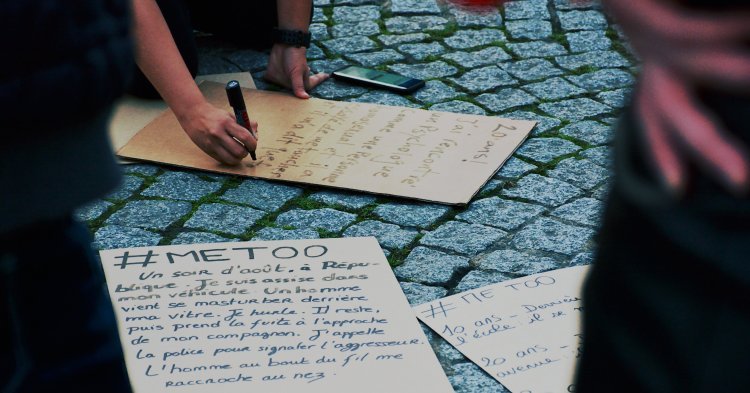 20 ans!
J'ai rencontré
un Psychologue
comme une Personne
#METOO
Un soir d'août, à Répu-
blique. Je suis assise dans
mon véhicule. Un homme
vient se masturber derrière
ma vitre. Je hurle. Il reste,
puis prend la fuite à l'approche
de mon compagnon. J'appelle
la police pour signaler l'aggresseur.
L'homme au bout du fil me
raccroche au nez.
#METOO
10 ans - Derrière
l'école, il se
20 ans -
avenue